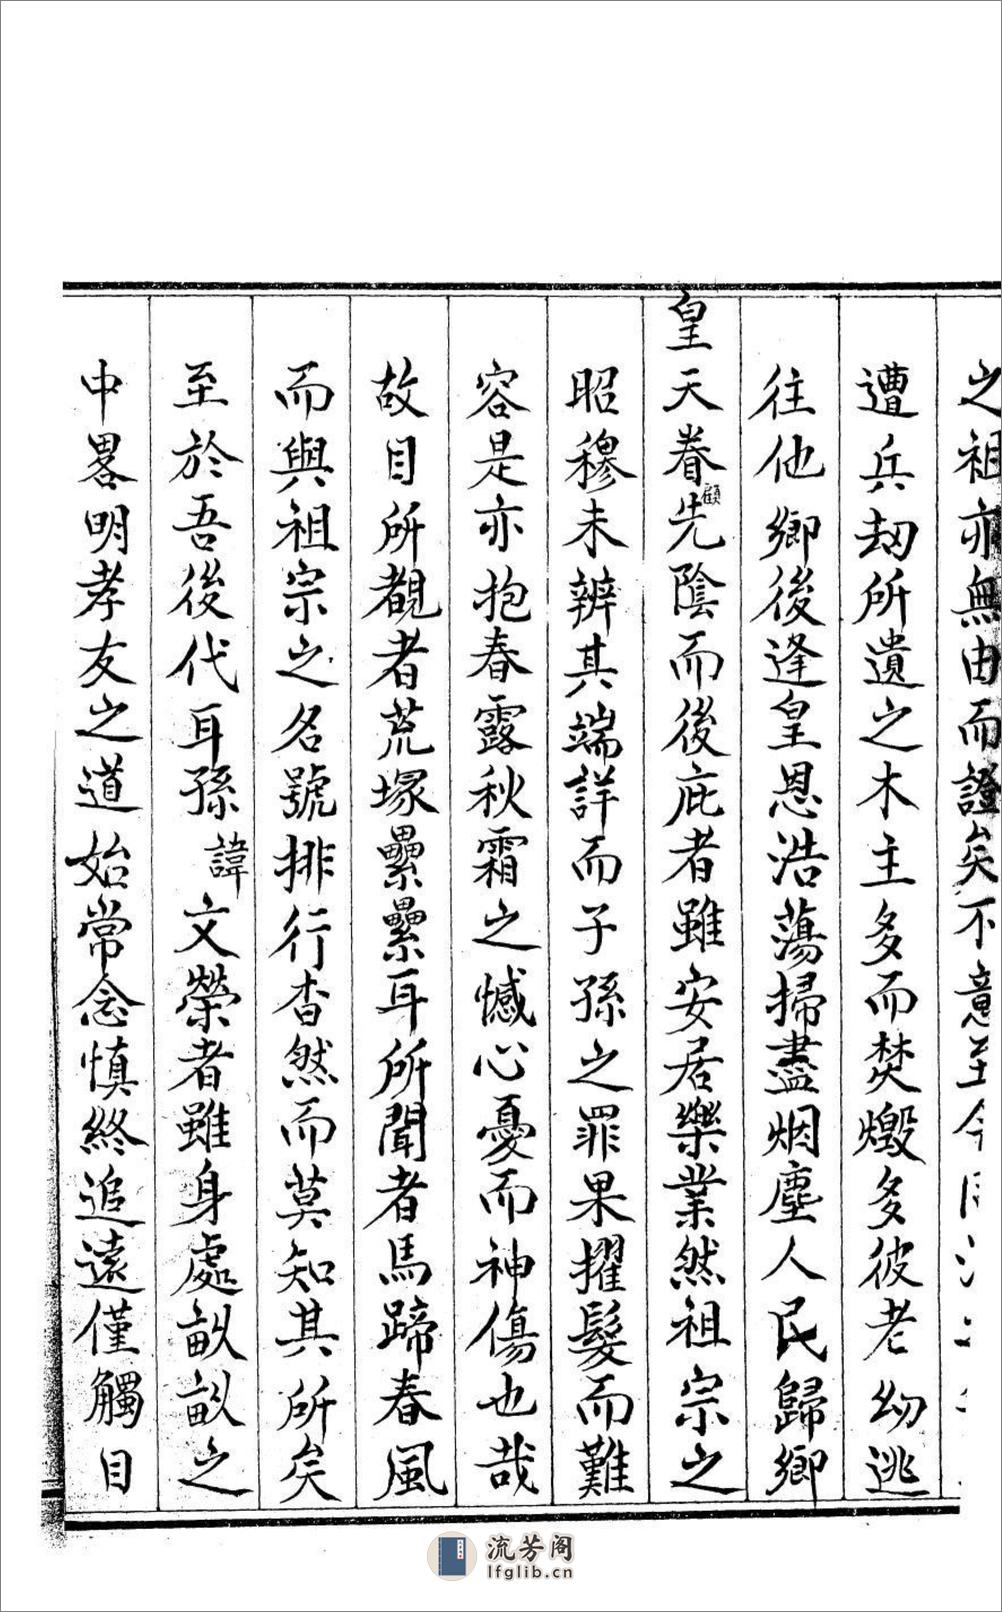 之祖亦無由而證矣不意至今
遭兵劫所遺之木主多而焚燬多彼老幼逃
往他鄉後逢皇恩浩蕩掃盡烟塵人民歸鄉
皇天眷顧先陰而後庇者雖安居樂業然祖宗之
昭穆未辨其端詳而子孫之罪果擢髮而難
容是亦抱春露秋霜之憾心憂而神傷也哉
故目所覩者荒塚纍纍耳所聞者馬蹄春風
而與祖宗之名號排行杳然而莫知其所矣
至於吾後代耳孫諱文榮者雖身處畝畝之
中畧明孝友之道始常念慎終追遠僅觸目
流芳阁
lfglib.cn